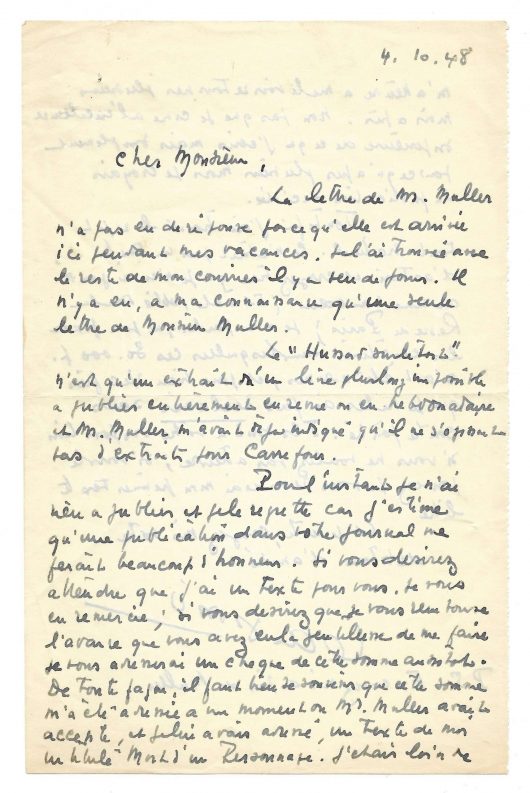 4. 10. 48
Cher Monsieur,
La lettre de M. Muller
n'a pas eu de réponse parce qu'elle est arrivée
ici pendant mes vacances. Je l'ai trouvée avec
le reste de mon courrier il y a peu de jours. Il
n'y a eu, à ma connaissance qu'une seule
lettre de Monsieur Muller.
Le "Hussard sur le toit"
n'est qu'un extrait d'un livre plus long impossible
à publier entièrement en revue ou en hebdomadaire
et M. Muller m'avait indiqué qu'il ne s'
pas d'extraits pour Carrefour.
Pour l'instant je n'ai
rien à publier et je le regrette car j'estime
qu'une publication dans votre journal me
ferait beaucoup d'honneur. Si vous désirez
attendre que j'ai un texte pour vous, je vous
en remercie; si vous désirez que je vous rembourse
l'avance que vous avez eu la gentillesse de me faire
je vous adresserai un chèque de cette somme aussitôt.
De toute façon, il faut bien se souvenir que cette somme
m'a été adressée à un moment où M. Muller avait
accepté, et je lui avais adressé, un texte de moi
intitulé Mort d'un Personnage. J'étais loin de